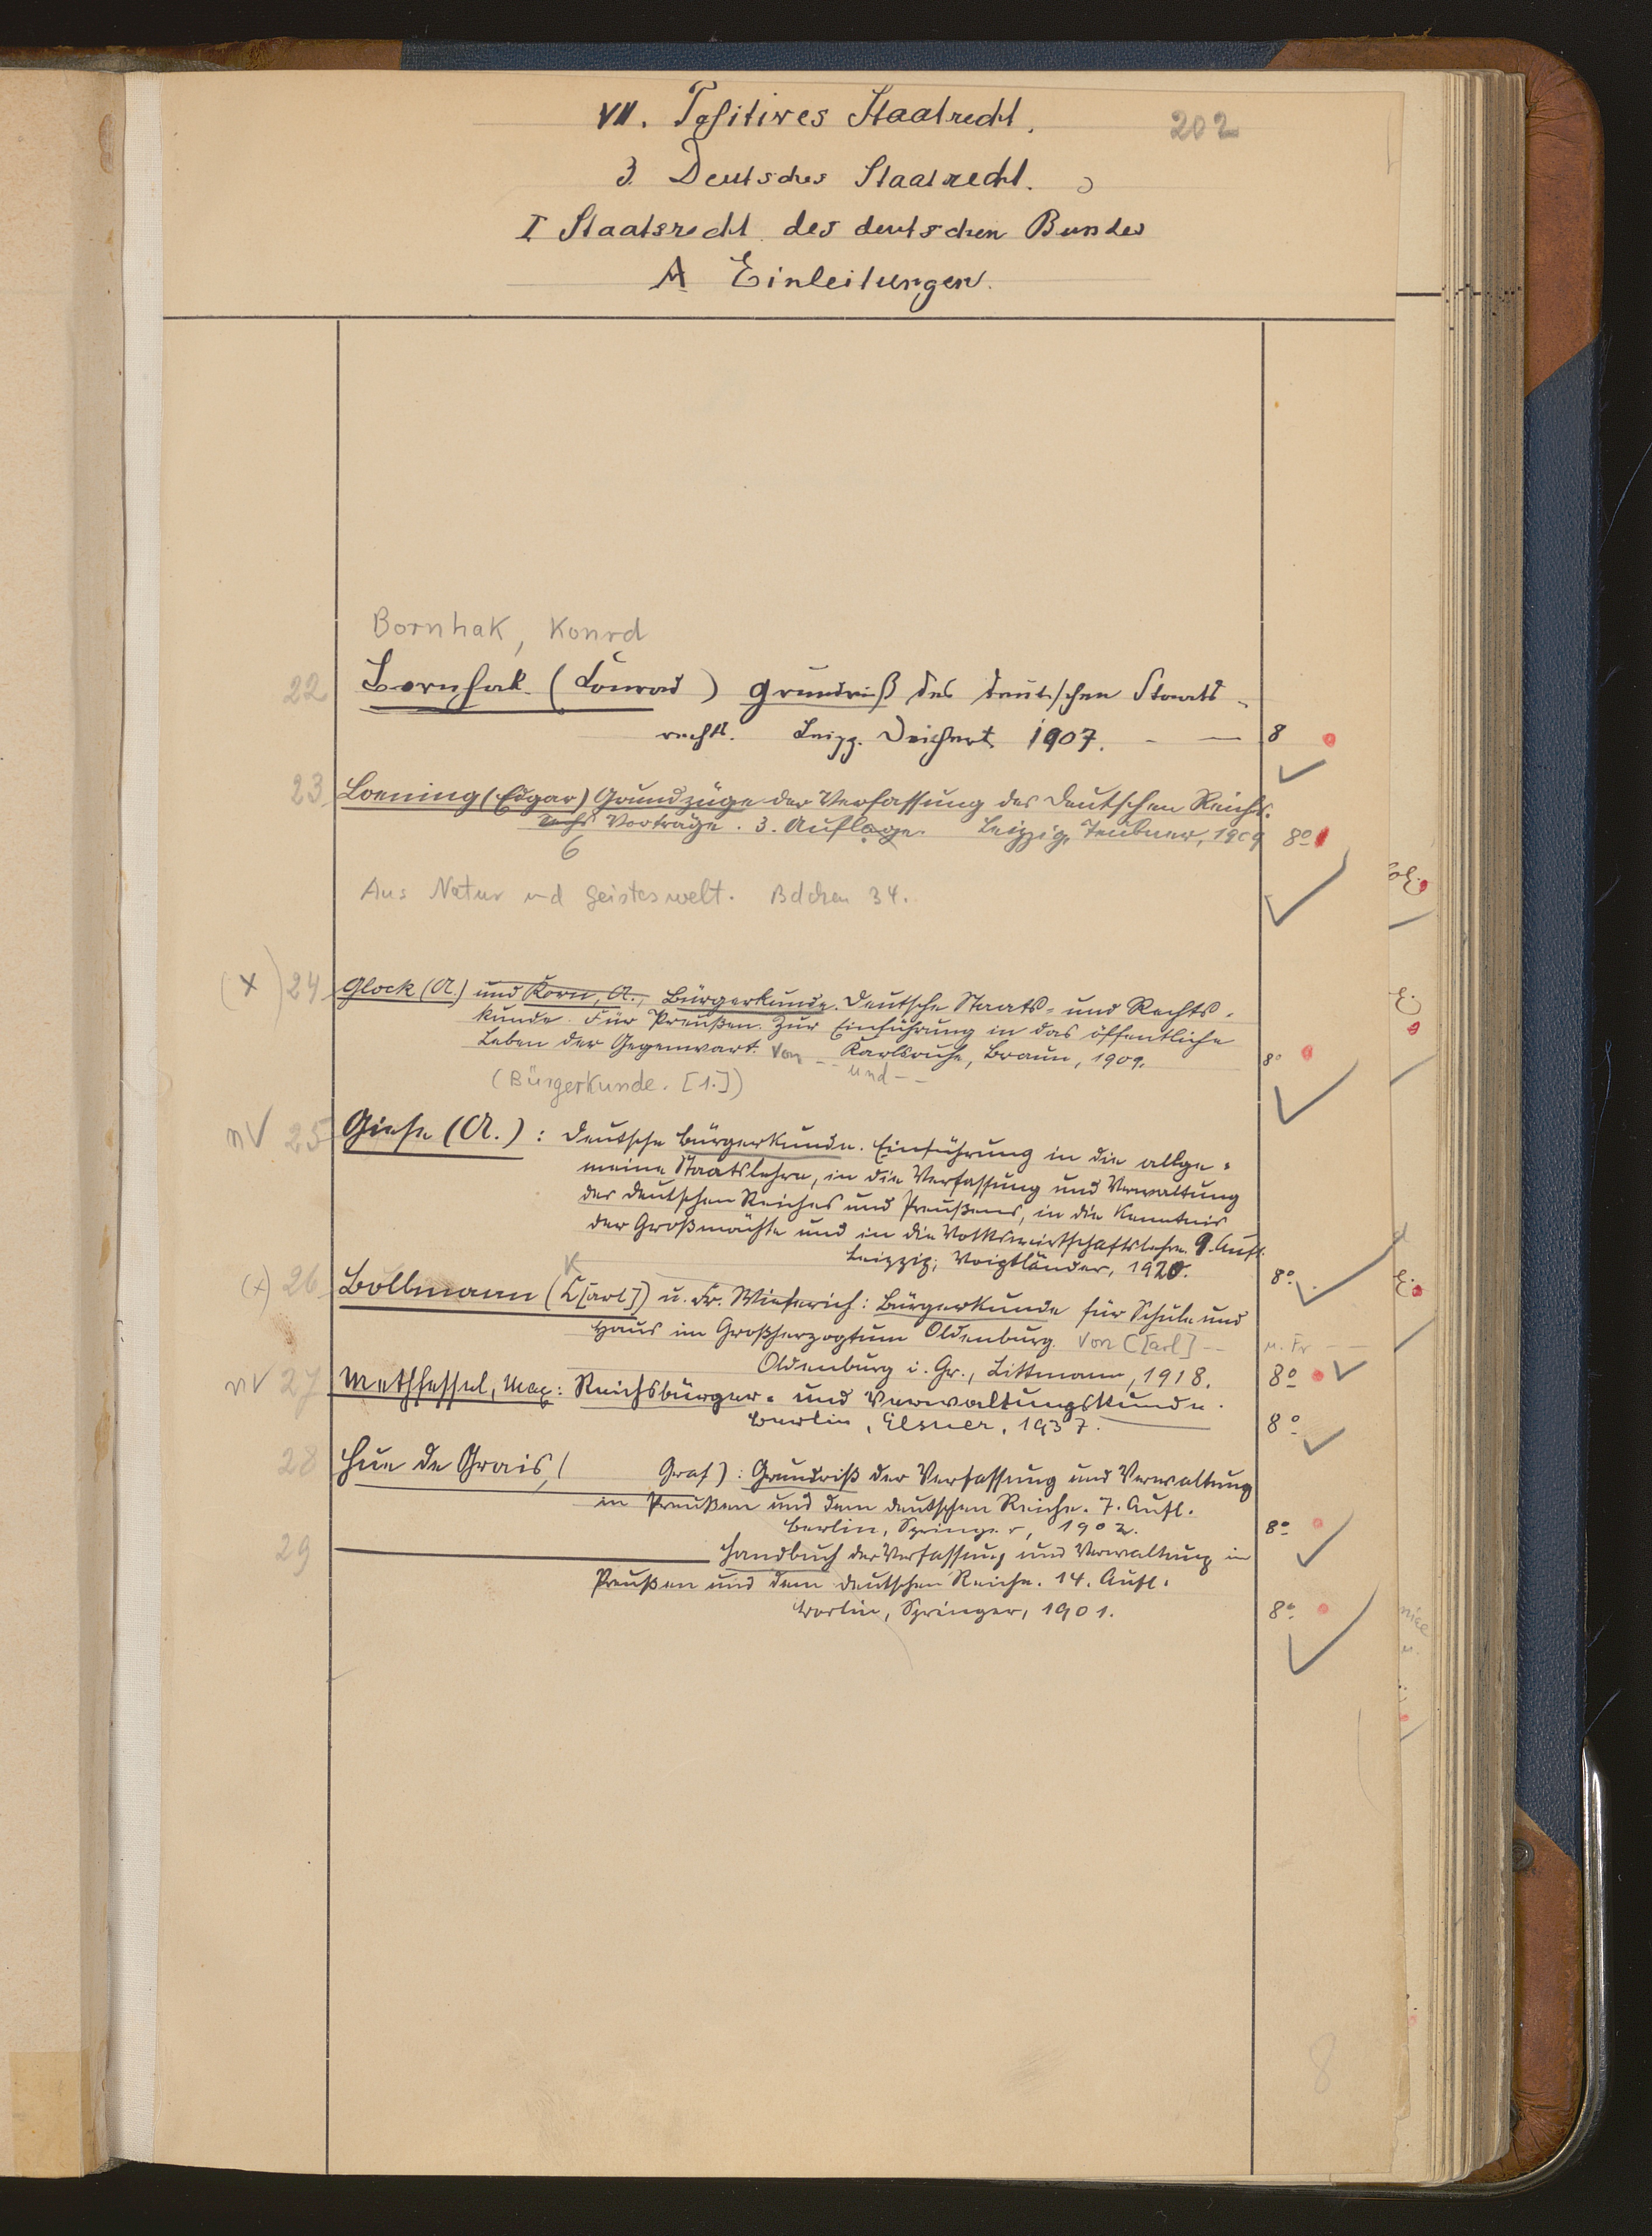 VII. Positives Staatrecht.
202
3. Deutsches Staatrecht.
I Staatsrecht des deutschen Bundes
A Einleitungen.
Bornhak, Konrd
22 Bornhak (Conrad) Grundriß des deutschen Staats-
rechts. Leipz. Deichert 1907. - — 8
23 Loening (Edgar) Grundzüge der Verfassung des Deutschen Reichs.
sechs Vorträge. 3. Auflage. Leipzig, Teubner, 1909 8o
6
Aus Natur und Geisteswelt. Bdchen 34.
(x) 24 Glock (A.) und Korn, A., Bürgerkunde. Deutsche Staats- und Rechts-
kunde. Für Preußen. Zur Einführung in das öffentliche
Leben der Gegenwart. Von -- Karlsruhe, Braun, 1909. 8o
und --
(Bürgerkunde. [1.])
nV 25 Giese (A.): Deutsche Bürgerkunde. Einführung in die allge-
meine Staatslehre, in die Verfassung und Verwaltung
des deutschen Reiches und Preußens, in die Kenntnis
der Großmächte und in die Volkswirtschaftslehre. 9. Aufl.
Leipzig, Voigtländer, 1920. 8o
K
(x) 26 Bollmann (C[arl]) u. Fr. Wieferich: Bürgerkunde für Schule und
Haus im Großherzogtum Oldenburg. Von C[arl] -- u. Fr --
Oldenburg i. Gr., Littmann, 1918. 8o
nV 27 Methfessel, Max: Reichsbürger- und Verwaltungskunde.
Berlin, Elsner, 1937. 8o
28 Hue de Grais, ( Graf): Grundriß der Verfassung und Verwaltung
in Preußen und dem deutschen Reiche. 7. Aufl.
Berlin, Springer, 1902. 8o
29 — Handbuch der Verfassung und Verwaltung in
Preußen und dem deutschen Reiche. 14. Aufl.
Berlin, Springer, 1901. 8o
8